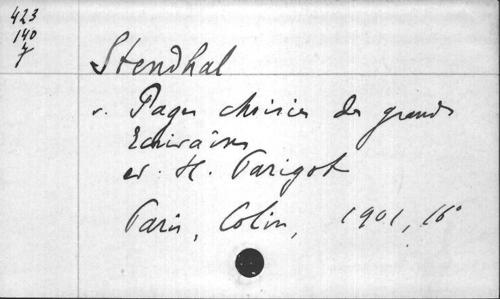 423
140
7
Stendhal
v. Pages choisies des grands
Écrivains
ed. H. Parigot
Paris, Colin, 1901, 16°